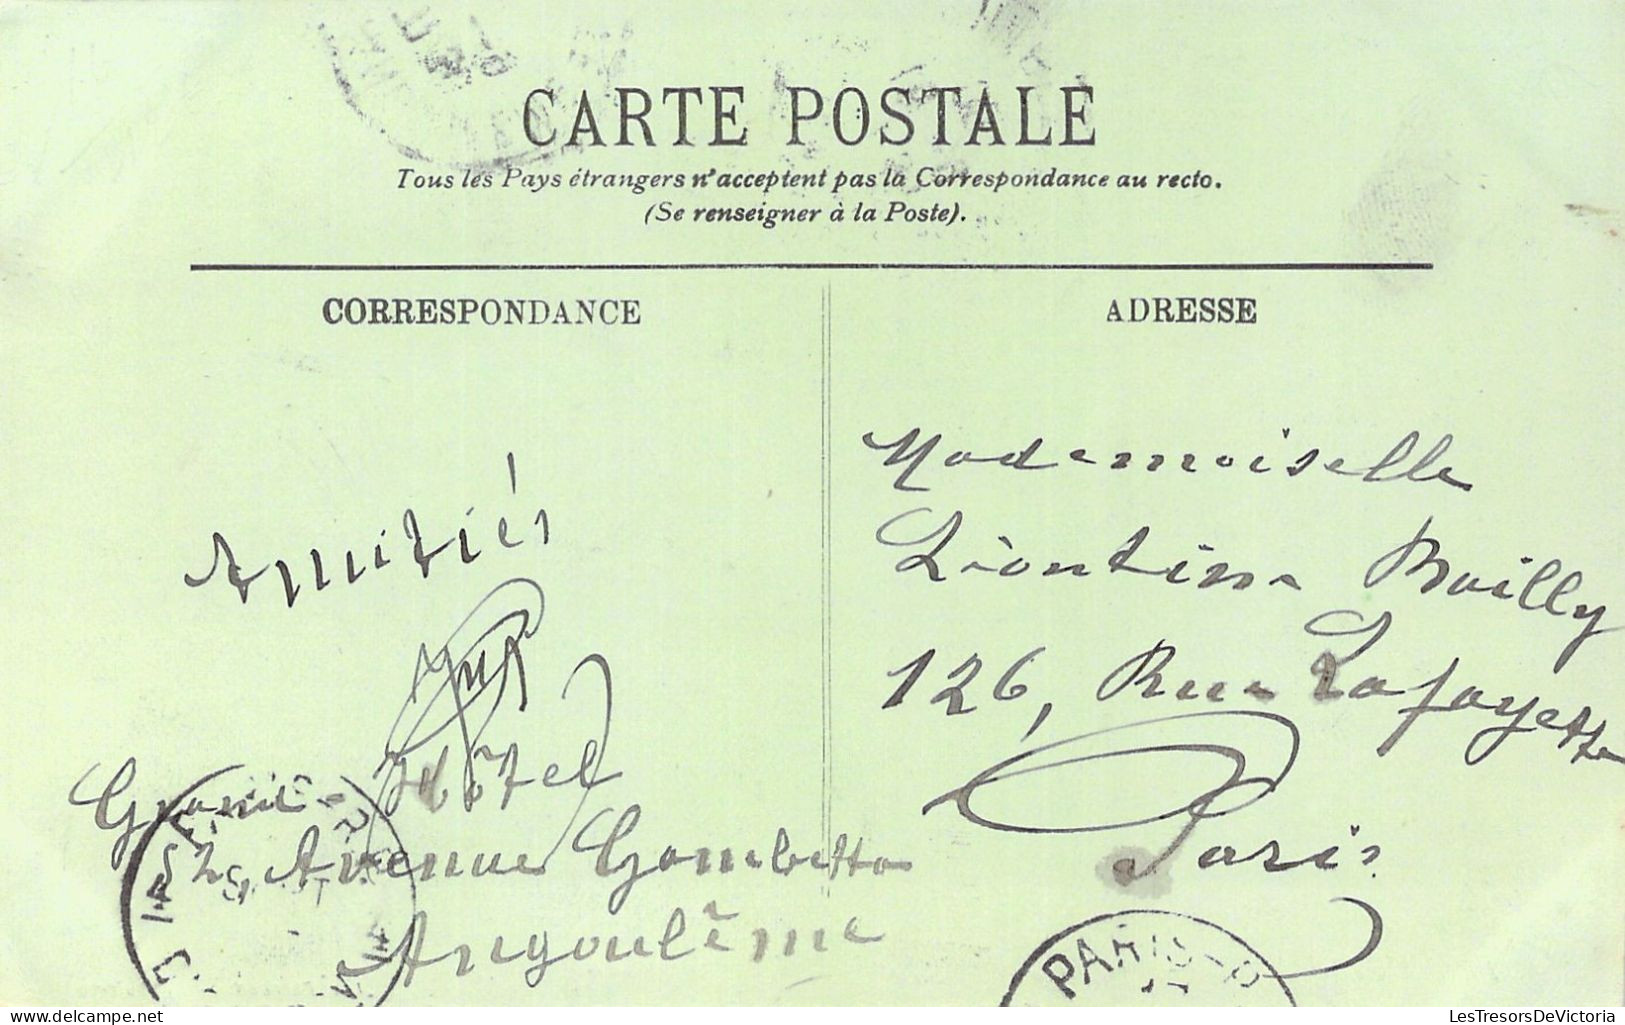 CARTE POSTALE
Tous les Pays étrangers n'acceptent pas la Correspondance au recto.
(Se renseigner à la Poste).
CORRESPONDANCE
ADRESSE
Amitiés
Grand Hôtel
52, Avenue Gambetta
Angoulême
Mademoiselle
Léontine Bailly
126, Rue Lafayette
Paris
PARIS
delcampe.net
LesTresorsDeVictoria